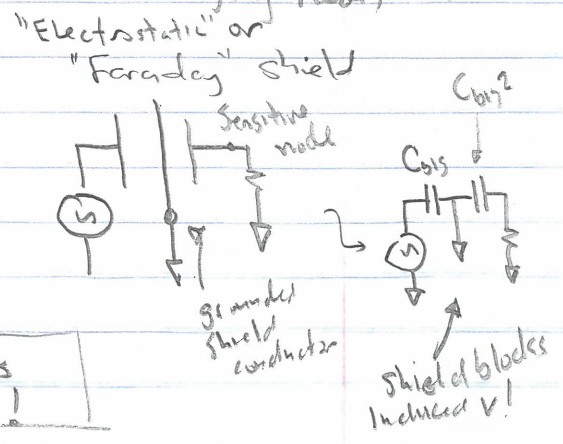 "Electrostatic" or
"Faraday" shield
Sensitive
node
Cbig2
Cbig
grounded
shield
conductor
shield blocks
Induced V!
s